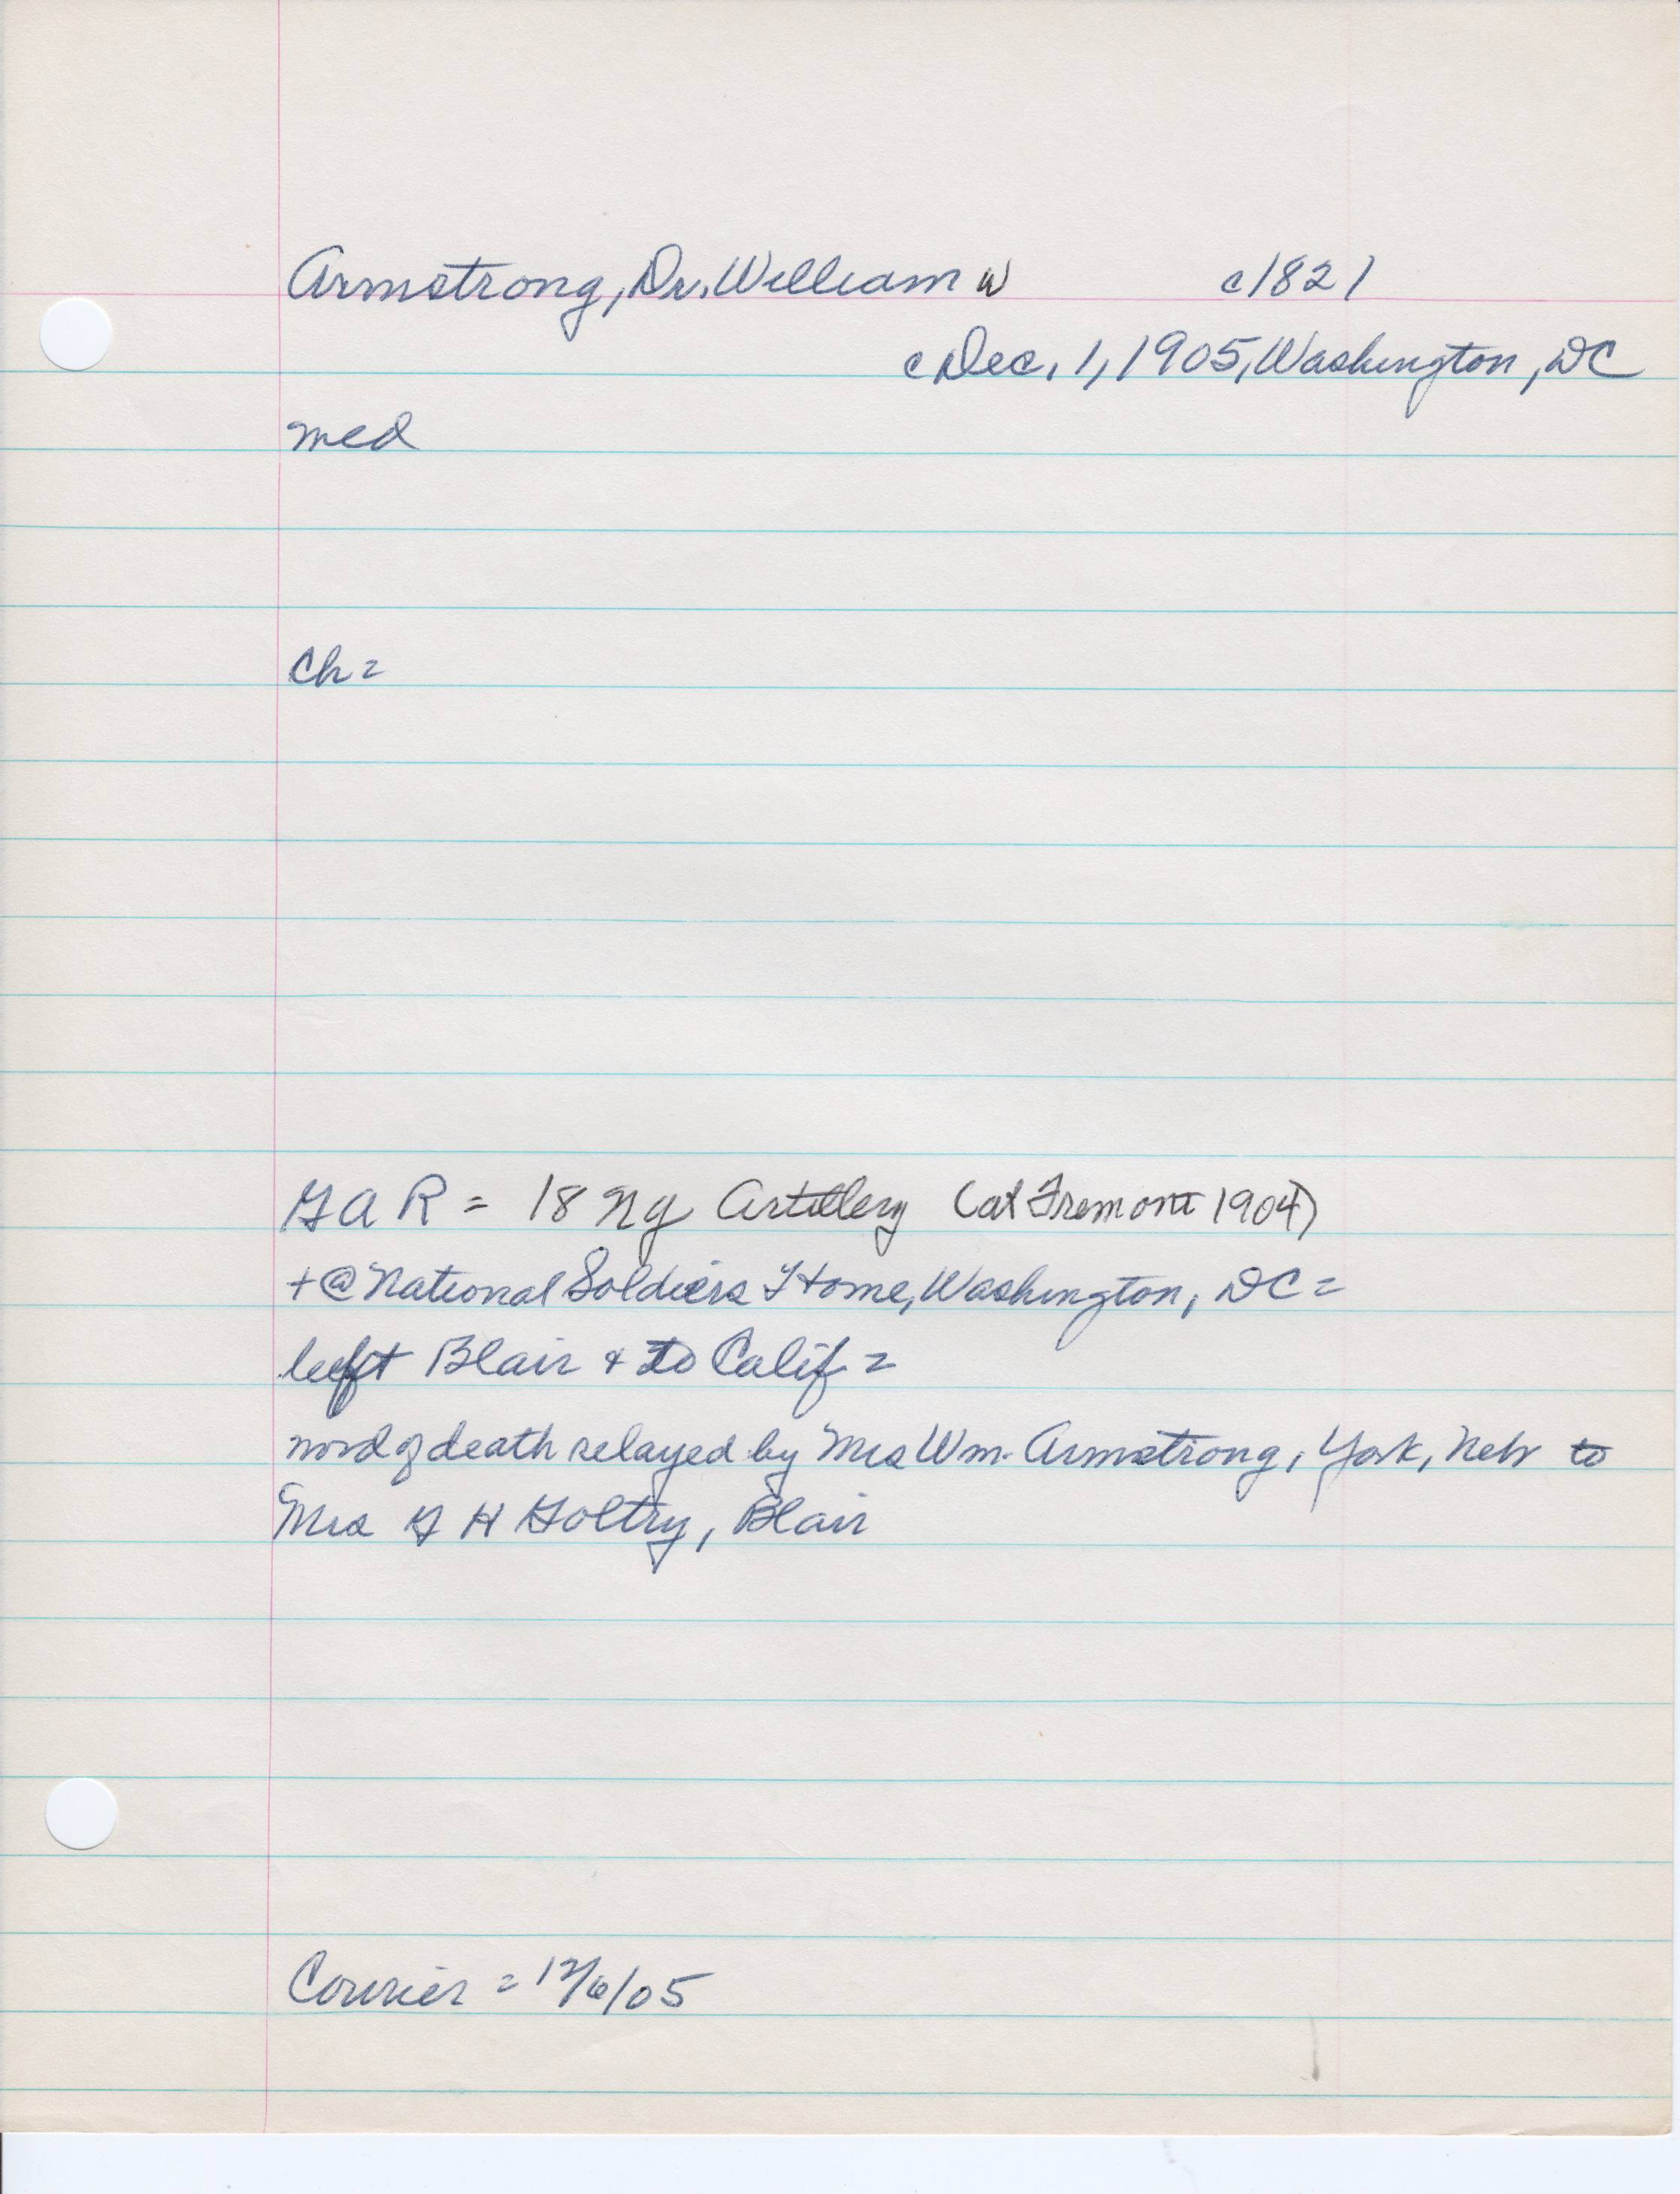 Armstrong, Dr. William W c1821
c Dec. 1, 1905, Washington, DC
med
Ch =
G A R = 18 Ny Artillery (at Fremont 1904)
+ @ National Soldiers Home, Washington, DC =
left Blair + to Calif =
word of death relayed by Mrs Wm. Armstrong, York, Neb to
Mrs G H Goltry, Blair
Courier = 12/6/05